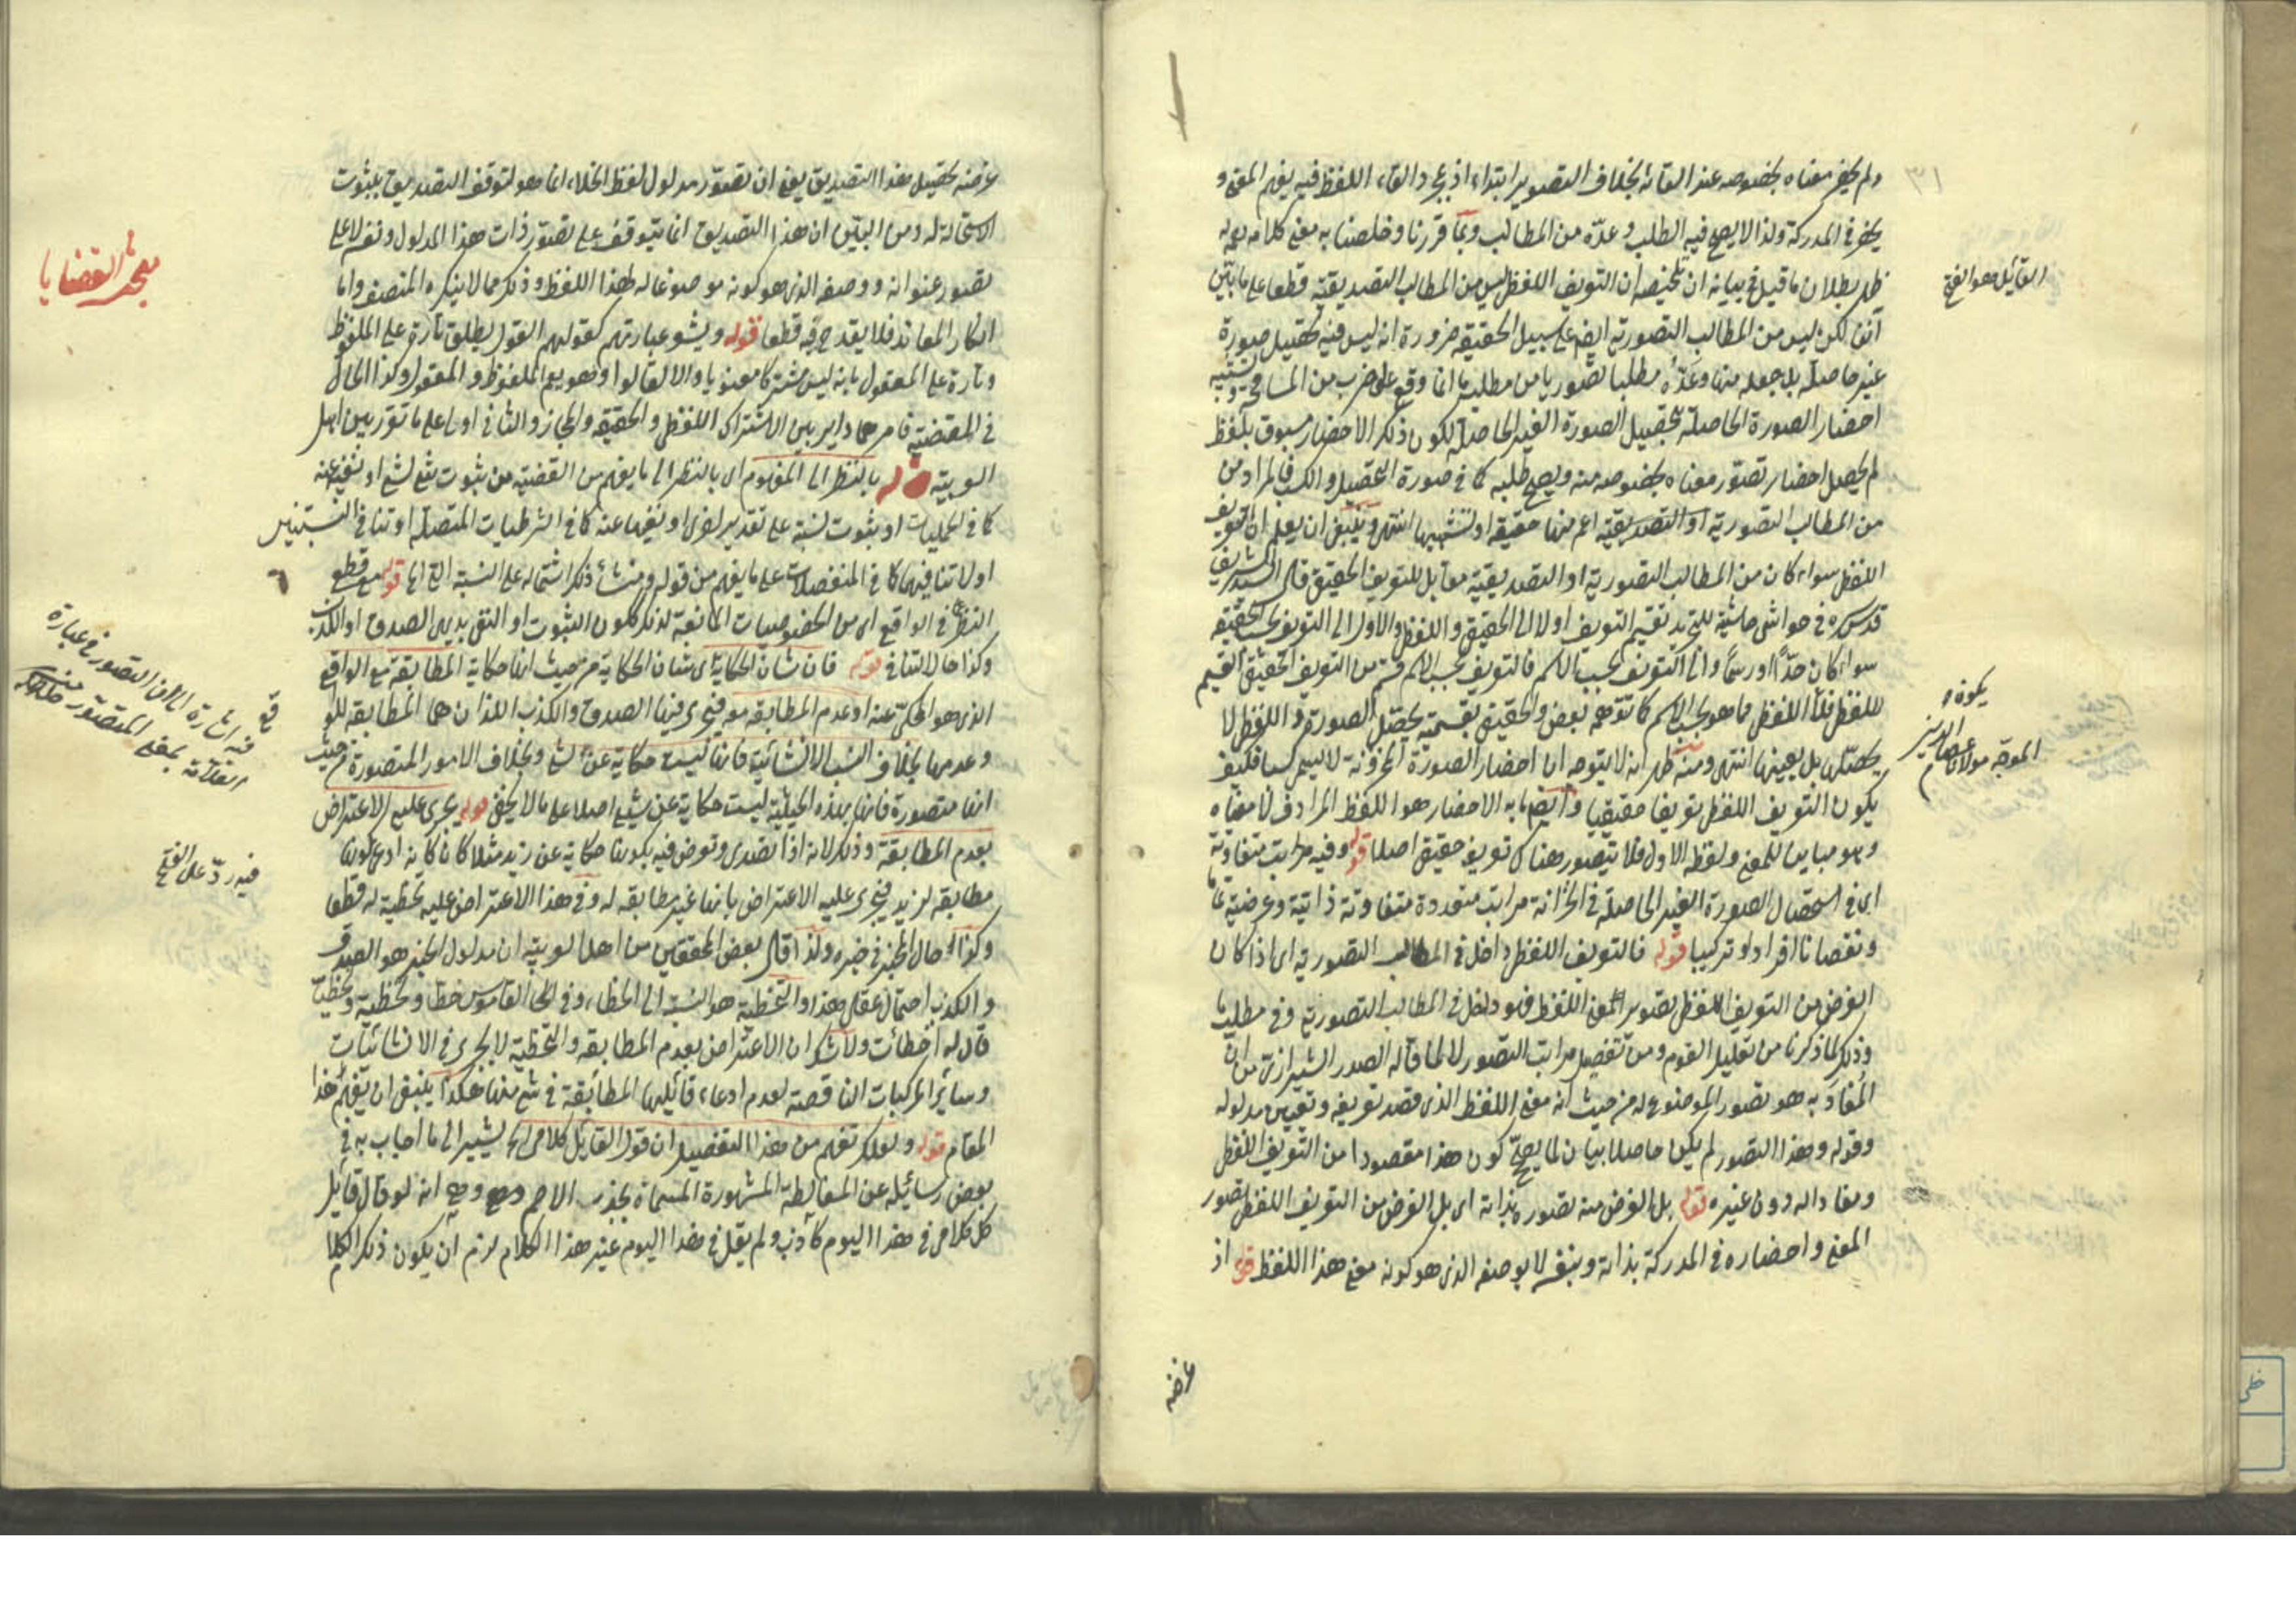 ٣١
ولم يحضر معناه بخصوصه عند القائه بخلاف التصوير ابتداء اذ بمجرد القاء اللفظ فيه يفهم المعنى و
يحضر في المدركة ولذا لا يصح فيه الطلب وعدّه من المطالب وبما قررنا وخلصنا به معنى كلامه
ظهر بطلان ما قيل في بيانه ان تلخيصه ان التعريف اللفظي ليس من المطالب التصديقية قطعا على ما بيّن
آنفا لكن ليس من المطالب التصورية ايضا على سبيل الحقيقة ضرورة انه ليس فيه تحصيل صورة
غير حاصلة بل جعله منها وعدّه مطلبا تصوريا من مطلب ما انما وقع على ضرب من المسامحة وتشبيه
احضار الصورة الحاصلة بتحصيل الصورة الغير الحاصلة لكون ذلك الاحضار مسبوق بلفظ
لم يحصل احضار تصور معناه بخصوصه منه ويصح طلبه كما في صورة التحصيل والكسب فالمراد من
من المطالب التصورية او التصديقية اعم منها حقيقة او تشبيها انتهى وينبغي ان يعلم ان التعريف
اللفظي سواء كان من المطالب التصورية او التصديقية مقابل للتعريف الحقيقي قال السيد الشريف
قدس سره في حواشي حاشية التجريد تقسيم التعريف اولا الى الحقيقي واللفظي والاول الى التعريف بحسب الحقيقة
سواء كان حدّا او رسمًا والى التعريف بحسب الاسم فالتعريف بحسب الاسم قسم من التعريف الحقيقي القسيم
للفظي اللفظي مما هو بحسب الاسم كما توهمه بعض والحقيقي بقسميه يحصّل الصورة واللفظي لا
يحصّلها بل يعينها انتهى ومنه ظهر انه لا يتوجه ان احضار الصورة المخزونة لا يسمى كسبا فكيف
يكون التعريف اللفظي تعريفا حقيقيا وايضا ما به الاحضار هو اللفظ المرادف لا معناه
وهو مباين للمعنى ولفظه الاول فلا يتصور هناك تعريف حقيقي اصلا قوله وفيه مراتب متفاوتة
اى في استحصال الصورة الغير الحاصلة في الخزانة مراتب متعددة متفاوتة ذاتية وعرضية تماما
ونقصانا افرادا وتركيبا قوله فالتعريف اللفظي داخل في المطالب التصورية اى اذا كان
الغرض من التعريف اللفظي تصوير المعنى اللفظ فهو داخل في المطالب التصورية وفي مطلب ما
وذلك لما ذكرنا من تعليل القوم ومن تفصيل مراتب التصور لا لما قاله الصدر الشيرازي من انّ
المفاد به هو تصور الموضوع له من حيث انه معنى اللفظ الذى قصد تعريفه وتعيين مدلوله
وقوله وهذا التصور لم يكن حاصلا بيان لما يصحّح كون هذا مقصودا من التعريف اللفظي
ومفادا له دون غيره قوله بل الغرض منه تصوره بذاته اى بل الغرض من التعريف اللفظي تصور
المعنى واحضاره في المدركة بذاته وبنفسه لا بوصفه الذى هو كونه معنى هذا اللفظ قوله اذ
غرضه
القائل هو الفتح
الموجّه مولانا
غرضه تحصيل هذا التصديق يعني ان تصوّر مدلول لفظ الخلاء انما هو لتوقف التصديق بثبوت
الاستحالة له ومن البيّن ان هذا التصديق انما يتوقف على تصوّر ذات هذا المدلول ونفسه لا على
تصور عنوانه ووصفه الذى هو كونه موضوعا له لهذا اللفظ وذلك مما لا ينكره المنصف واما
انكار المعاند فلا يقدح فيه قطعا قوله ويشعر عبارتهم كقولهم القول يطلق تارة على الملفوظ
وتارة على المعقول بانه ليس مشتركا معنويا والا لقالوا وهو يعم الملفوظ والمعقول وكذا الحال
في القضية فامرهما داير بين الاشتراك اللفظي والحقيقة والمجاز والثاني اولى على ما تقرر بين اهل
العربية قوله بالنظر الى المفهوم اى بالنظر الى ما يفهم من القضية من ثبوت شئ لشئ او نفيه عنه
كما في الحمليات او ثبوت نسبة على تقدير اخرى او نفيها عنه كما في الشرطيات المتصلة او تنافي النسبتين
او لا تنافيهما كما في المنفصلات على ما يفهم من قوله ومنشأ ذلك اشتماله على النسبة الخ قوله مع قطع
النظر عما في الواقع اى من الخصوصيات المانعة لذلك ككون الثبوت او النفي بديهى الصدق او الكذب
وكذا حال التنافي قوله فان شان الحكاية اى شان الحكاية من حيث انها حكاية المطابقة مع الواقع
الذى هو المحكي عنه او عدم المطابقة معه فيجرى فيها الصدق والكذب اللذان هما المطابقة للواقع
وعدمها بخلاف النسب الانشائية فانها ليست حكاية عن شئ وبخلاف الامور المتصورة من حيث
انها متصورة فانها بهذه الحيثية ليست حكاية عن شئ اصلا على ما لا يخفى قوله يجرى عليه الاعتراض
بعدم المطابقة وذلك لانه اذا تصدى وتعرض فيه بكونها حكاية عن زيد مثلا كان كانه ادعى كونها
مطابقة لزيد فيجرى عليه الاعتراض بانها غير مطابقة له وفي هذا الاعتراض عليه تخطية له قطعا
وكذا حال المخبر في خبره ولذا قال بعض المحققين من اهل العربية ان مدلول الخبر هو الصدق
والكذب احتمال عقلي هذا والتخطية هو النسبة الى الخطاء وفي القاموس خطّأ وتخطية وتخطيّا
قال له اخطأت ولا شك ان الاعتراض بعدم المطابقة والتخطية لا يجرى في الانشائيات
وسائر المركبات الناقصة لعدم ادعاء قائلها المطابقة في شئ منها هكذا ينبغي ان يفهم هذا
المقام قوله ولعلك تفهم من هذا التفصيل ان قول القايل كلامى الخ يشير الى ما اجاب به في
بعض رسائله عن المغالطة المشهورة المسماة بجذر الاصم وهو انه لو قال قايل
كل كلامى في هذا اليوم كاذب ولم يقل في هذا اليوم غير هذا الكلام لزم ان يكون ذلك الكلام
مبحث القضايا
فيه اشارة الى ان التصور في عبارة
العلامة بمعنى المتصور
فيه ردّ على الفتح